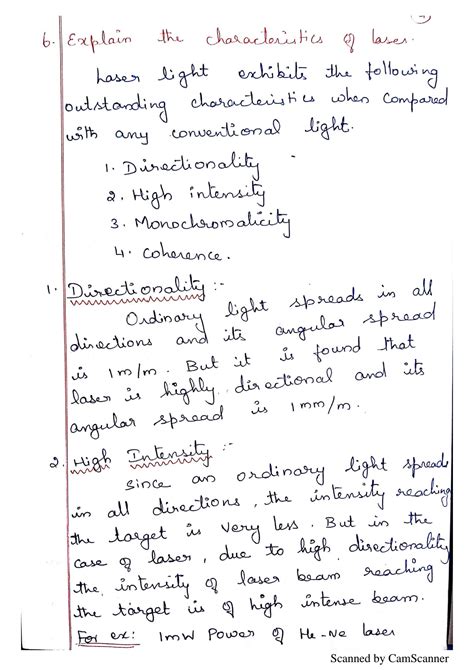 6. Explain the characteristics of laser.
Laser light exhibits the following
outstanding characteristics when compared
with any conventional light.
1. Directionality
2. High intensity
3. Monochromaticity
4. Coherence.
1. Directionality :-
Ordinary light spreads in all
directions and its angular spread
is 1m/m. But it is found that
laser is highly directional and its
angular spread is 1mm/m.
2. High Intensity :-
Since an ordinary light spreads
in all directions, the intensity reaching
the target is very less. But in the
case of laser, due to high directionality
the intensity of laser beam reaching
the target is of high intense beam.
For ex: 1mW Power of He-Ne laser
Scanned by CamScanner